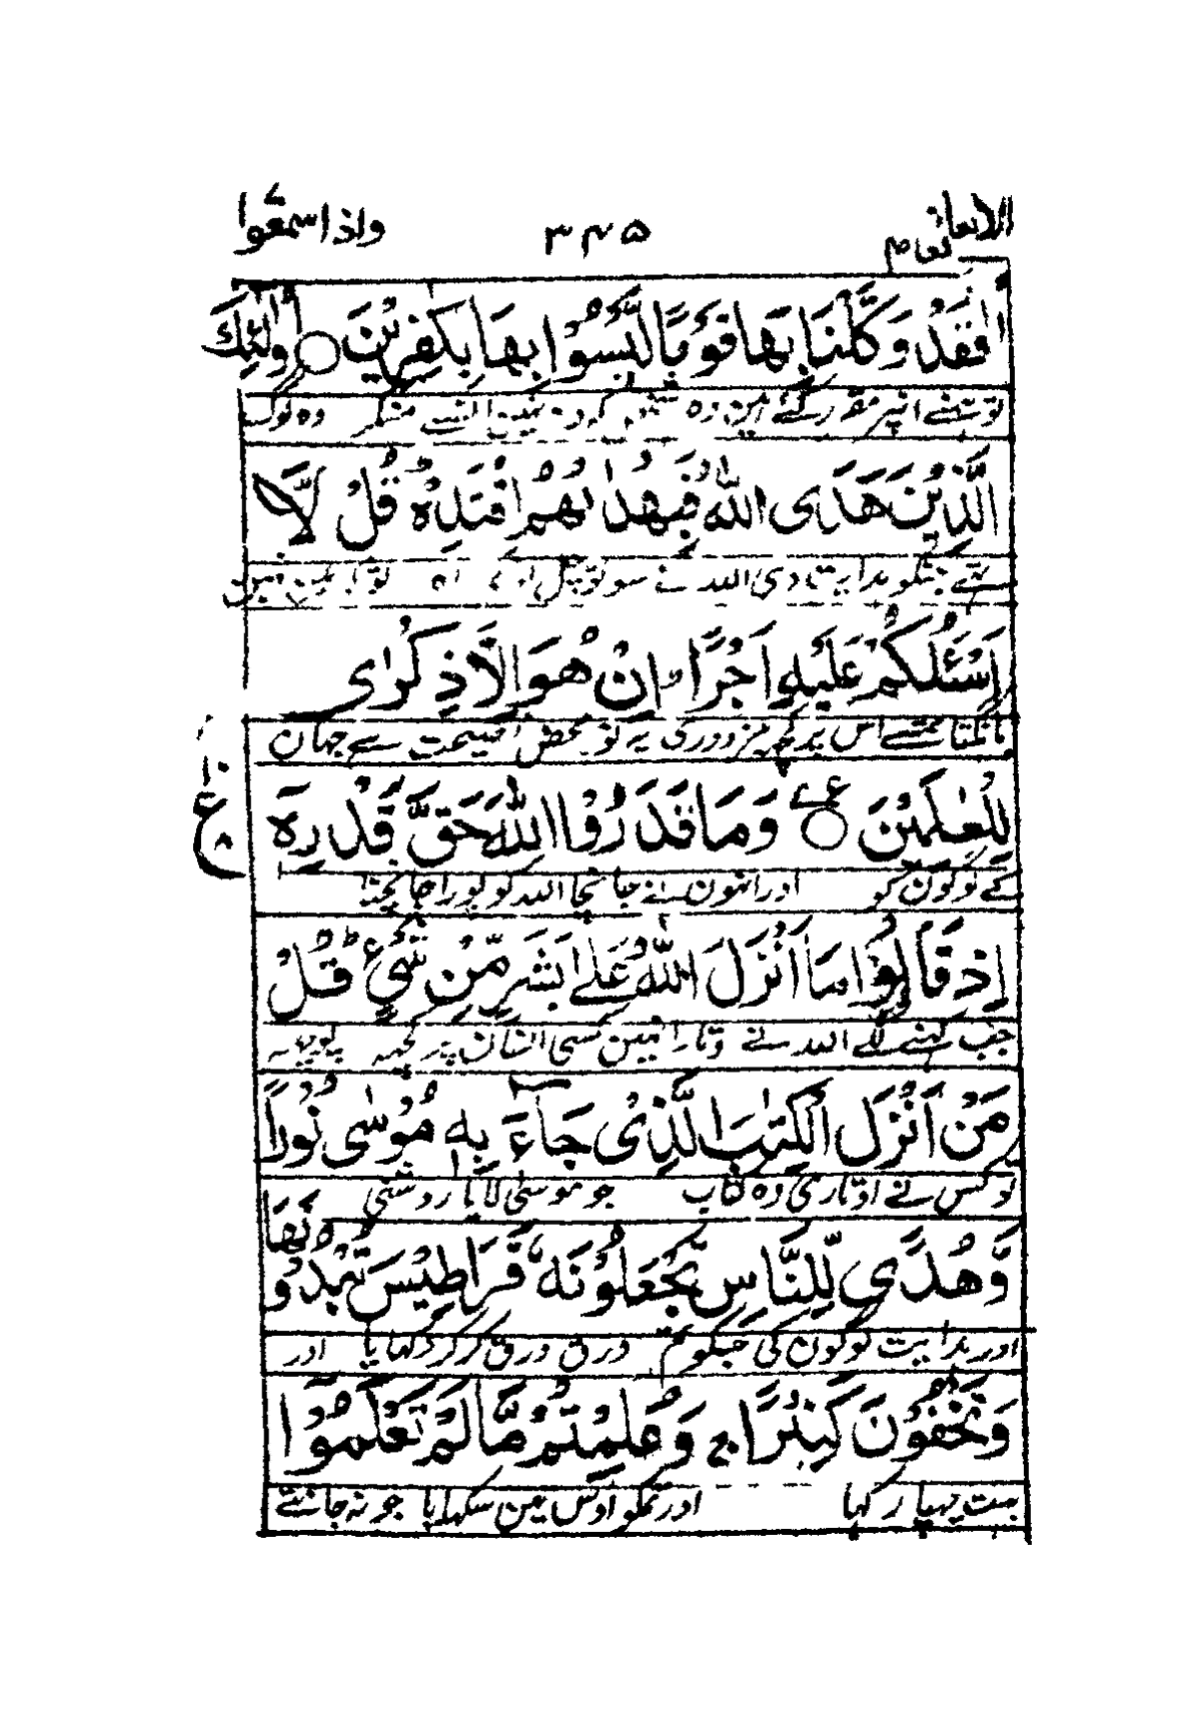 الانعام ٣٤٥ واذا سمعوا
فَقَدْ وَكَّلْنَا بِهَا قَوْمًا لَّيْسُوْا بِهَا بِكٰفِرِيْنَ ○ اُولٰٓئِكَ
وہ لوگ
الَّذِيْنَ هَدَى اللّٰهُ فَبِهُدٰىهُمُ اقْتَدِهْ ؕ قُلْ لَّآ
جنکو ہدایت دی اللہ نے سو تو چل
اَسْئَلُكُمْ عَلَيْهِ اَجْرًا ؕ اِنْ هُوَ اِلَّا ذِكْرٰى
مانگتا تمسے اس پر کچھ مزدوری یہ تو محض نصیحت ہے جہان
لِلْعٰلَمِيْنَ ○ وَمَا قَدَرُوا اللّٰهَ حَقَّ قَدْرِهٖٓ
ع
کے لوگون کو اور انہون نے جانچا اللہ کو پورا جانچنا
اِذْ قَالُوْا مَآ اَنْزَلَ اللّٰهُ عَلٰى بَشَرٍ مِّنْ شَىْءٍ ؕ قُلْ
جب کہنے لگے اللہ نے اوتارا نہین کسی انسان پر کچھ
مَنْ اَنْزَلَ الْكِتٰبَ الَّذِىْ جَآءَ بِهٖ مُوْسٰى نُوْرًا
کس نے اوتاری وہ کتاب جو موسیٰ لایا روشنی
وَّهُدًى لِّلنَّاسِ تَجْعَلُوْنَهٗ قَرَاطِيْسَ تُبْدُوْنَهَا
اور ہدایت لوگون کی جسکو تم ورق ورق کر کر دکھایا اور
وَتُخْفُوْنَ كَثِيْرًا ۚ وَعُلِّمْتُمْ مَّا لَمْ تَعْلَمُوْٓا
بہت چھپا رکھا اور تمکو اوس مین سکھایا جو نہ جانتے